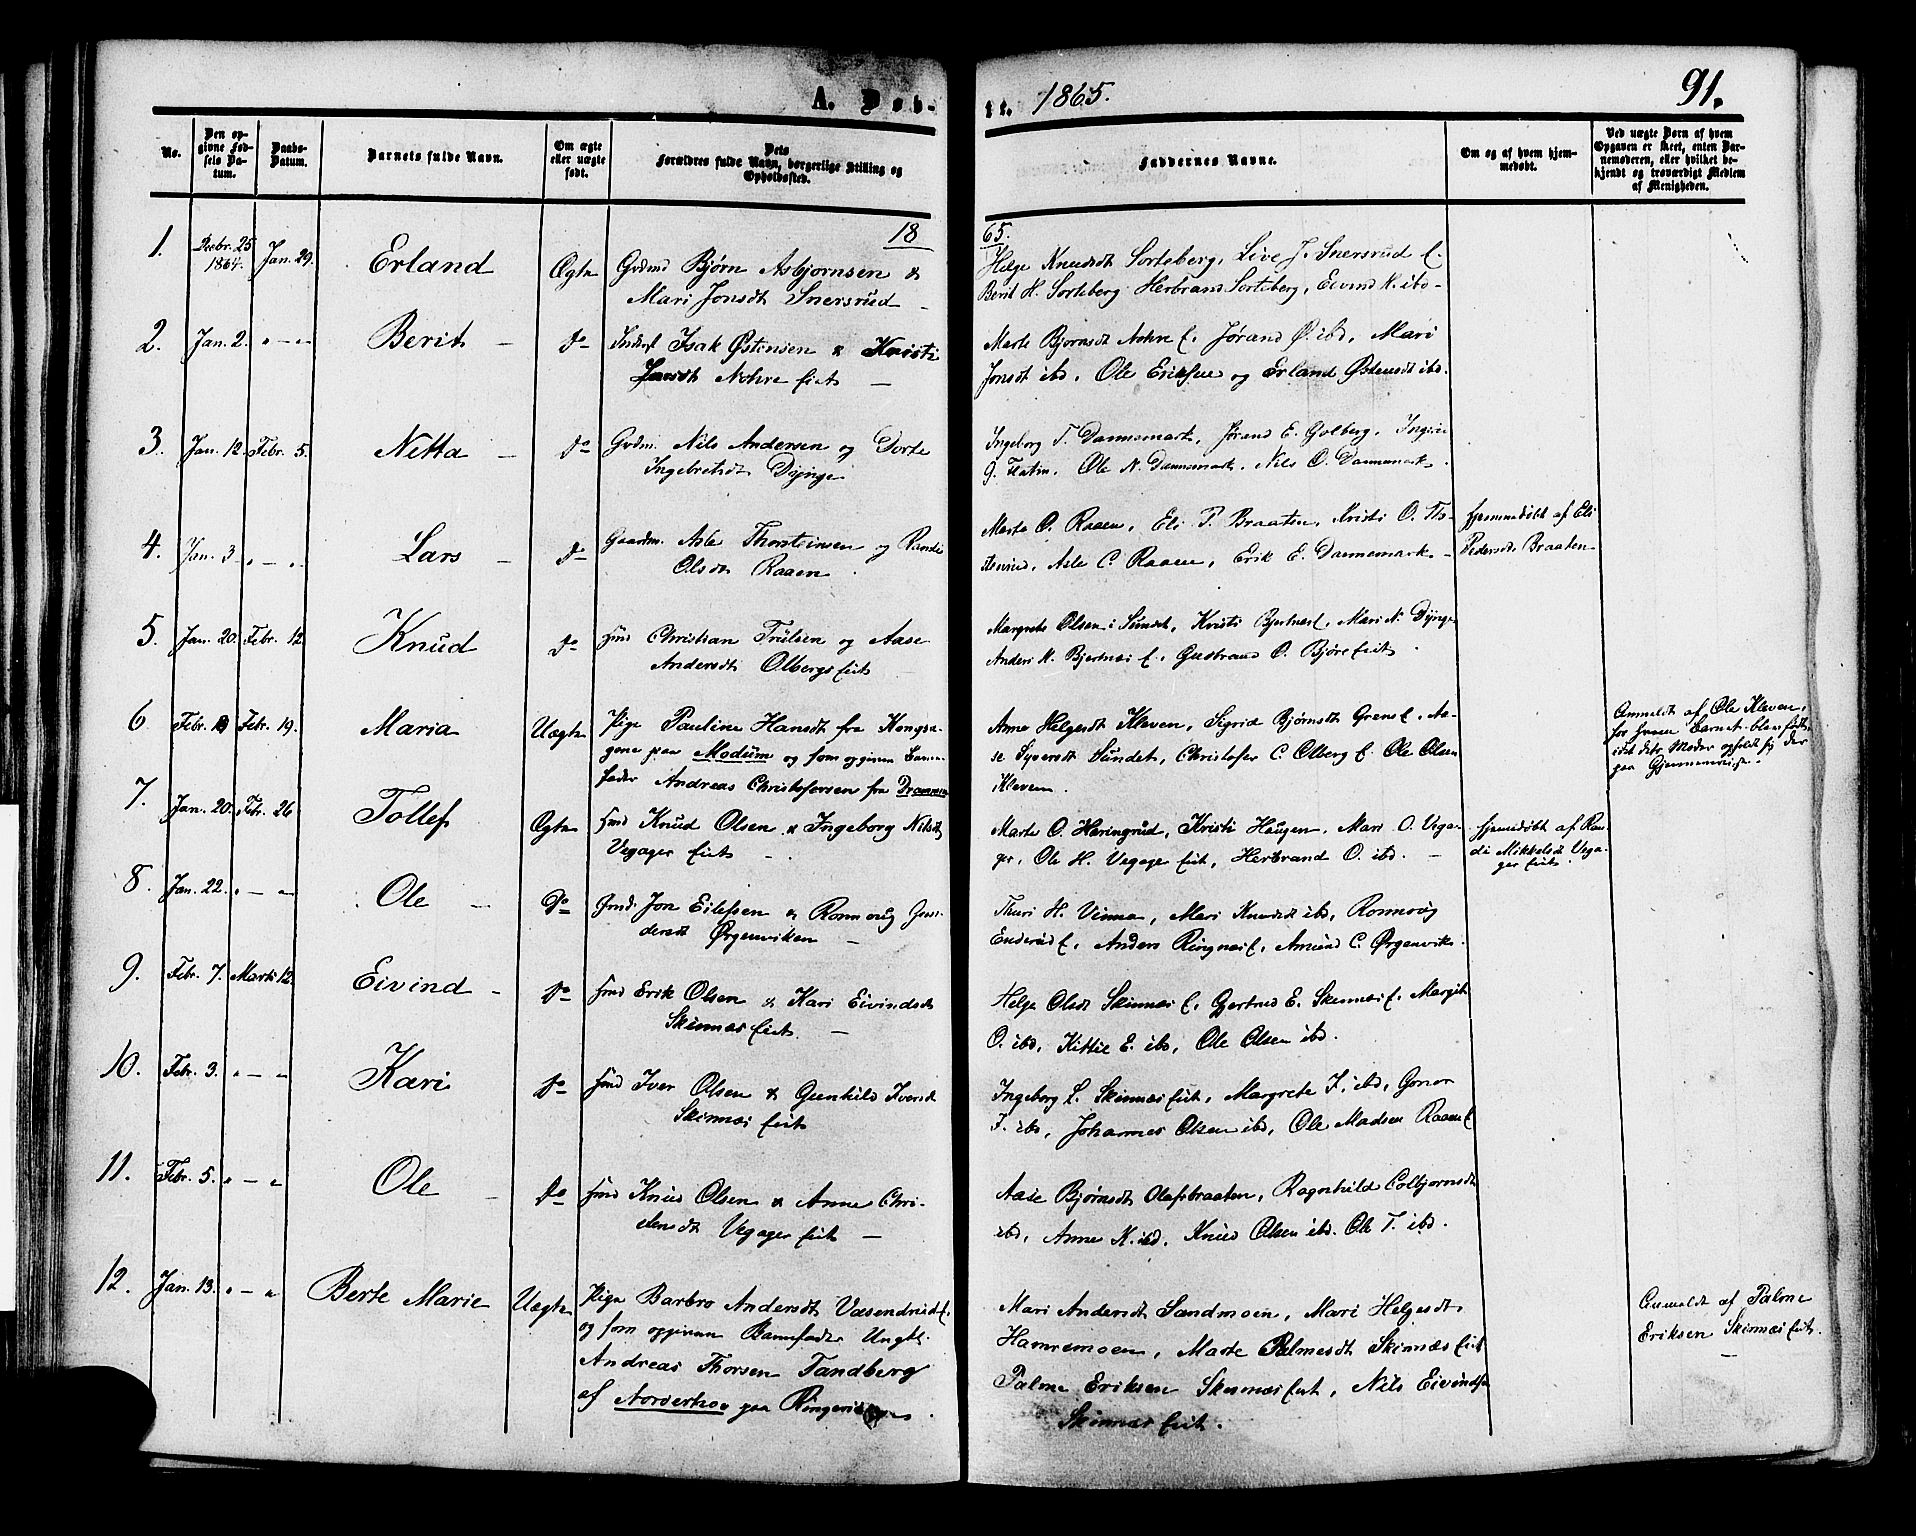 A. Døb-
te. 1865. 91.
No.
Den op-
givne Fød-
sels Da-
tum.
Daabs-
Datum.
Barnets fulde Navn.
Om ægte
eller uægte
født.
Dets
Forældres fulde Navn, borgerlige Stilling og
Opholdssted.
Faddernes Navne.
Om og af hvem hjem-
medøbt.
Ved uægte Børn af hvem
Opgaven er skeet, enten Bar-
nemoderen, eller hvilket be-
kjendt og troværdigt Medlem
af Menigheden.
18 65.
1. Decbr. 25 1864. Jan. 29. Erland Ægte Grdmd Bjørn Asbjørnsen &
Mari Jonsdt Snersrud -
Helge Knudsdt Sorteberg, Live J. Snersrud E.
Berit H. Sorteberg Herbrand Sorteberg, Eivind K. ibd -
2. Jan. 2. " - " Berit - do Isak Østensen & Kristi
Jonsdt Nohre Eiet -
Marte Bjørnsdt Nohre E. Jørand Ø. ibd, Mari
Jonsdt ibd. Ole Eriksen og Erland Østensdt ibd.
3. Jan. 12. Febr. 5. Netta - do Grdm. Nils Andersen og Dorte
Ingebretsdt Dynge
Ingeborg T. Dannemark, Jørand E. Golberg, Ingrie
G. Flatin, Ole N. Dannemark, Nils O. Dannemark
4. Jan. 3 " - " Lars - do Gaardm. Asle Thorsteinsen og Randi
Olsdt Raaen
Marte O. Raaen, Eli P. Braaten, Kristi O.
Asle C. Raaen, Erik E. Dannemark -
hjemmedøbt af Eli
Pedersdt. Braaten -
5. Jan. 20. Febr. 12 Knud do Hmd Christian Trulsen og Aase
Andersdt Olbergs Eiet
Margrete Olsen i Sundet, Kristi Bjertnæs E, Mari N. Dynge
Anders K. Bjertnæs E. Gulbrand O. Bjøre Eiet
6 Febr. Febr. 19. Maria Uægte Pige Pauline Hansdt fra Kongs-
gene paa Modum og som opgiven Barne-
fader Andreas Christofersen fra Drammen
Anne Helgesdt Kleven, Sigrid Bjørnsdt Grens E, Aa-
se Syversdt Sundet, Christofer C. Olberg E. Ole Olsen
Kleven.
Anmeldt af Ole Kleven,
for hvem Barnet blev født,
idet dets Moder opholdt sig der
paa Gjennemreise.
7. Jan. 20. Febr. 26 Tollef Ægte Hmd Knud Olsen & Ingeborg Nilsdt
Vegager Eiet -
Marte O. Haringrud, Kristi Haugen, Mari O. Vega-
ger, Ole H. Vegager Eiet, Herbrand O. ibd. -
hjemmedøbt af Ran-
di Mikkelsdt Vega-
ger Eiet.
8. Jan. 22. " - " Ole - do Hmd. Jon Eilefsen & Ronnoug Gun-
dersdt Ørgenviken -
Thuri H. Vinna, Mari Knudsdt ibd, Ronnoug
Enderud E, Anders Ringnæs E, Amund C. Ørgenvik.
9. Febr. 7. Marts 12. Eivind - do Hmd Erik Olsen & Kari Eivindsdt
Skinnæs Eiet -
Helga Olsdt Skinnæs E, Gjertrud E. Skinnæs E, Margit
O. ibd, Kittil E. ibd, Ole Olsen ibd.
10. Febr. 3. " - " Kari do Hmd Iver Olsen & Gunhild Iversdt
Skinnæs Eiet
Ingeborg L. Skinnæs Eiet, Margrete I. ibd, Gonor
I. ibd, Johannes Olsen ibd, Ole Madsen Raaen E
11. Febr. 5. " - " Ole - do Hmd Knud Olsen & Anne Chri-
stensdt Vegager Eiet -
Aase Bjørnsdt Olafsbraaten, Ragnhild Colbjørnsdt
ibd, Anne K. ibd, Knud Olsen ibd. Ole T. ibd.
12. Jan. 13. " - " Berte Marie Uægte Pige Barbro Andersdt Væsendrud E.
og som opgiven Barnefader Ungk.
Andreas Thorsen Tandberg
af Norderhov paa Ringerige
Mari Andersdt Sandmoen, Mari Helgesdt
Hamremoen, Marte Palmesdt Skinnæs Eiet
Palme Eriksen Skinnæs Eiet, Nils Eivindsen
Skinnæs Eiet.
Anmeldt af Palme
Eriksen Skinnæs Eiet.
-